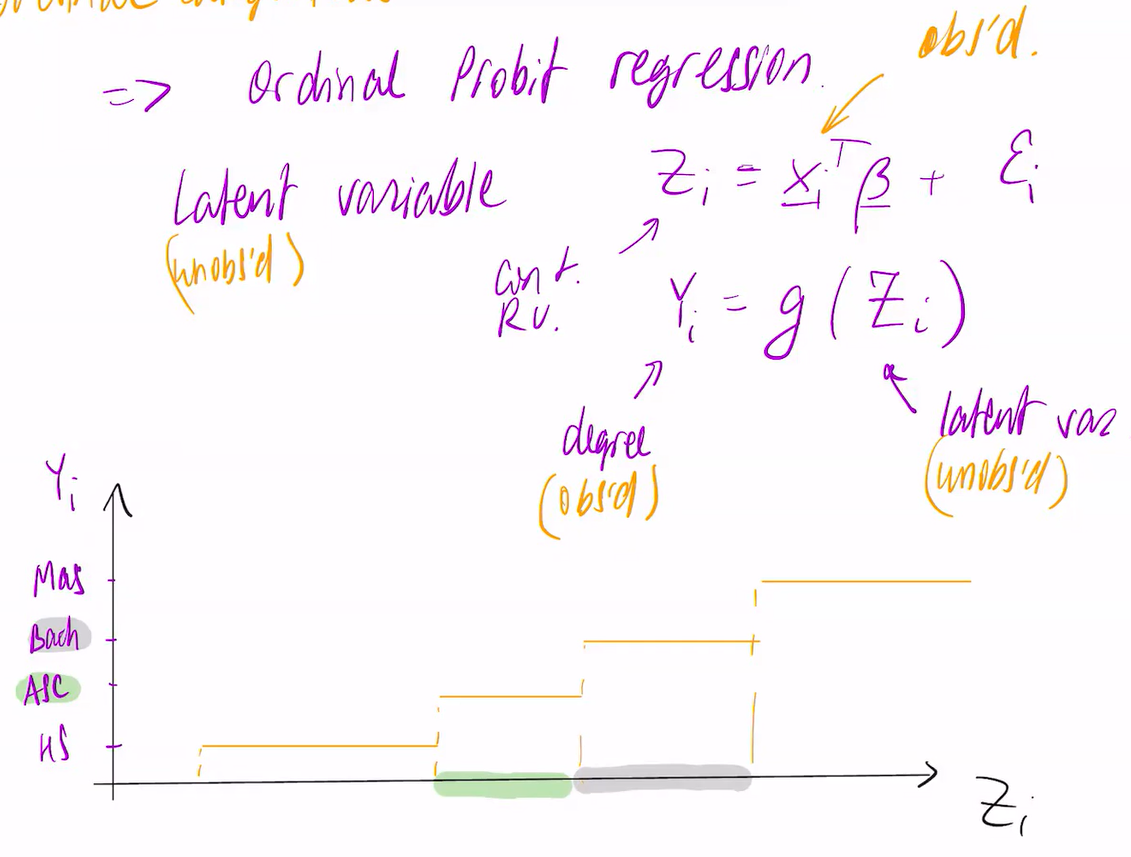 => Ordinal Probit regression.
obs'd.
Latent variable
(unobs'd)
Zi = xiᵀ β + εi
cont.
RV.
Yi = g(Zi)
degree
(obs'd)
latent var
(unobs'd)
Yi
Mas
Bach
ASC
HS
Zi